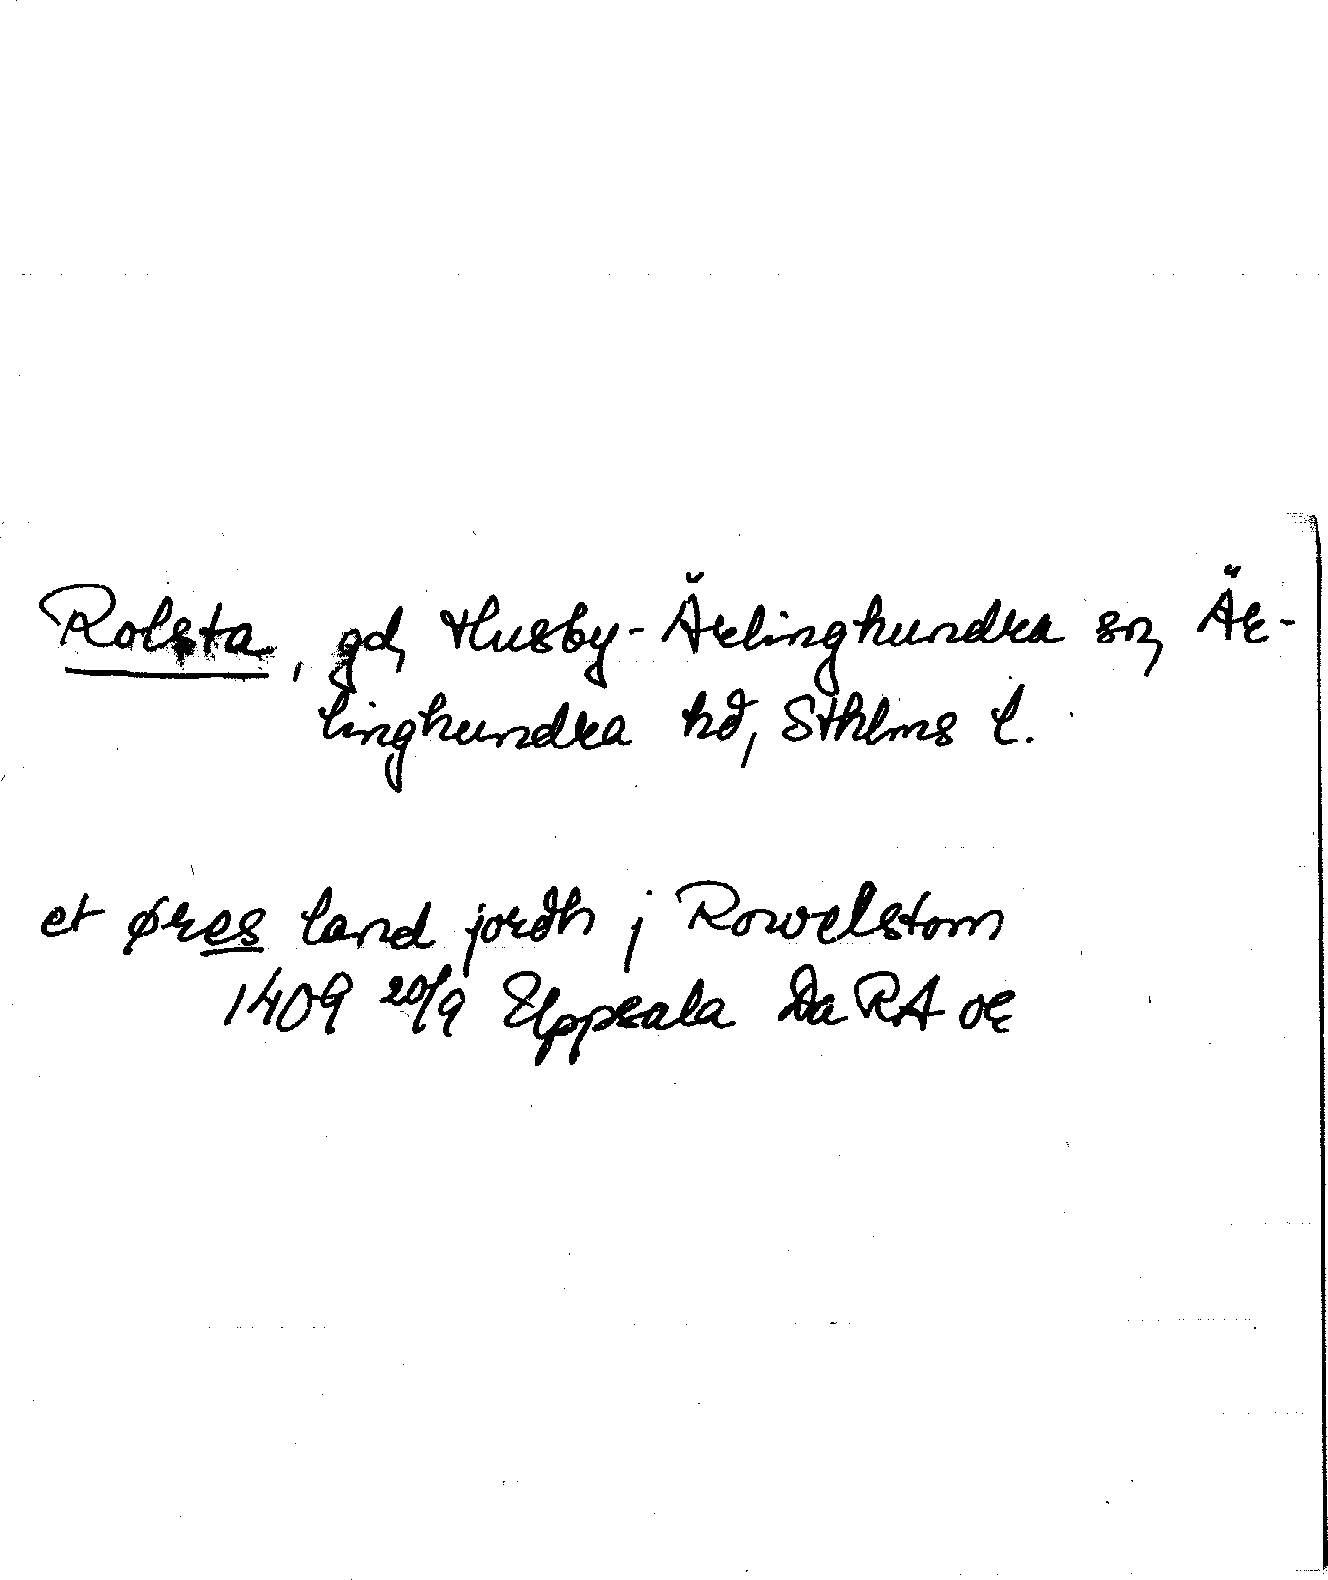 Rolsta, gd, Husby-Ärlinghundra sn, Är-
linghundra hd, Sthlms l.
et øres land jordh j Rowelstom
1409 20/9 Uppsala DaRA or